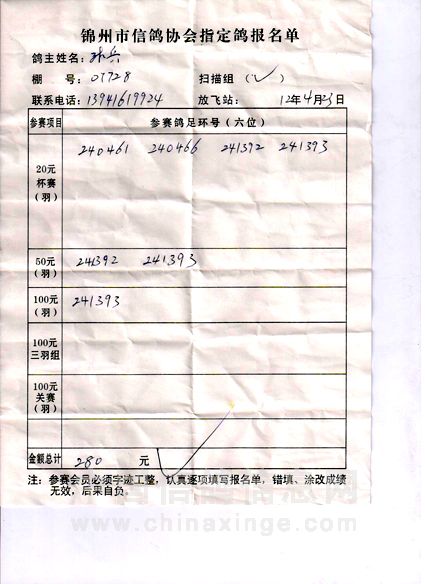 锦州市信鸽协会指定鸽报名单
鸽主姓名:孙兵
棚 号:07728 扫描组(✓)
联系电话:13941619924 放飞站: 12年4月23日
参赛项目 参赛鸽足环号(六位)
20元
杯赛
(羽)
240461 240466 241392 241393
50元
(羽)
241392 241393
100元
(羽)
241393
100元
三羽组
100元
关赛
(羽)
金额总计 280 元
注:参赛会员必须字迹工整,认真逐项填写报名单,错填、涂改成绩
无效,后果自负。
www.chinaxinge.com